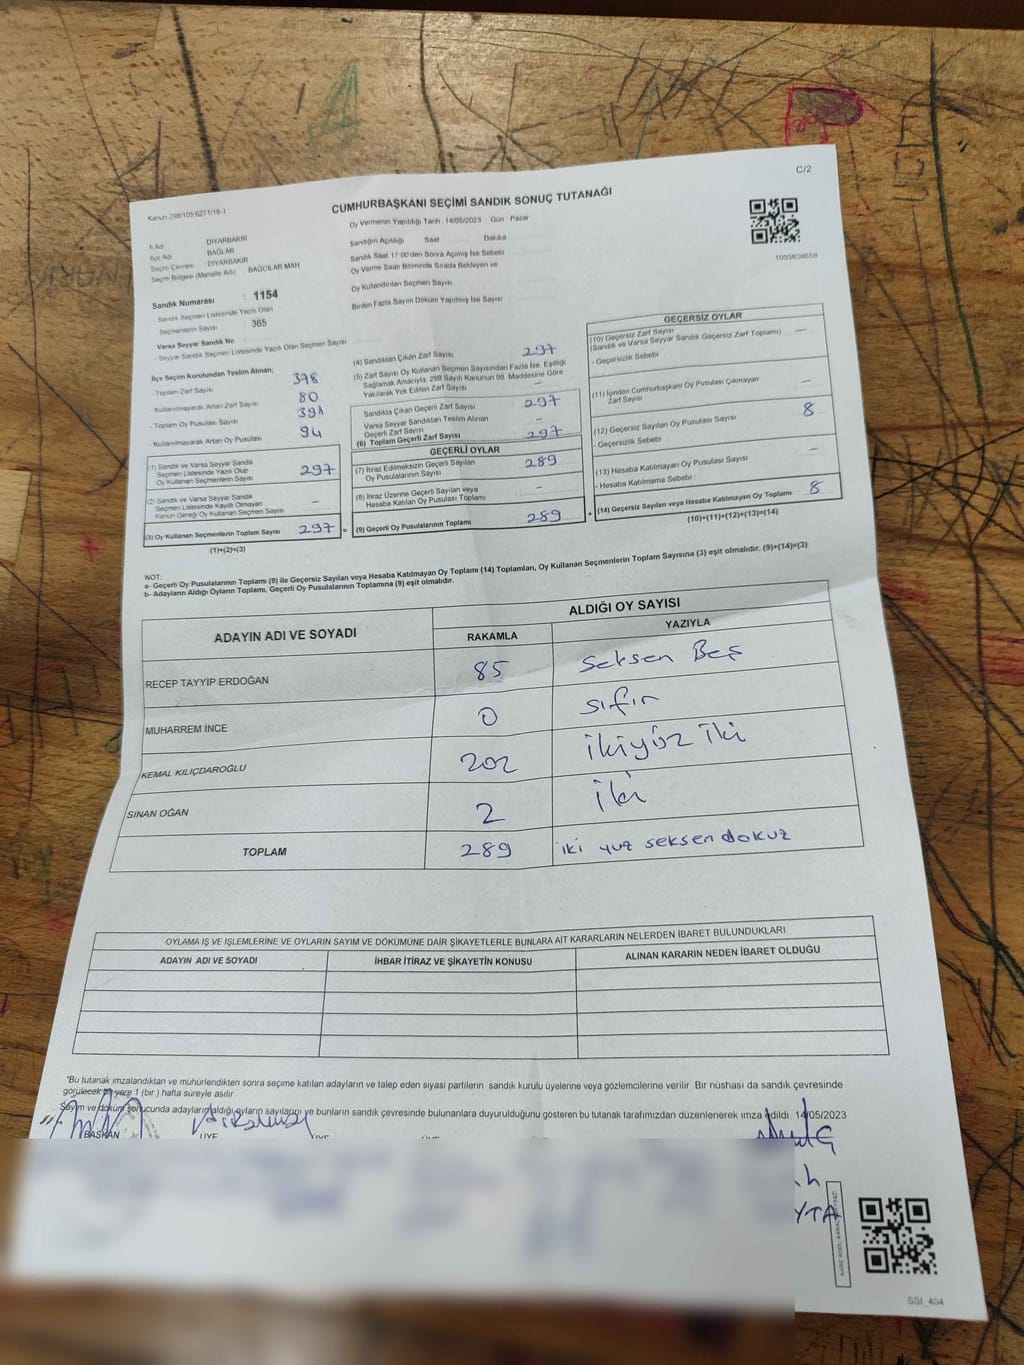 C/2
Kanun 298/105 6271/18-1
CUMHURBAŞKANI SEÇİMİ SANDIK SONUÇ TUTANAĞI
Oy Vermenin Yapıldığı Tarih : 14/05/2023 Gün : Pazar
İl Adı : DİYARBAKIR
İlçe Adı : BAĞLAR
Seçim Çevresi : DİYARBAKIR
Seçim Bölgesi (Mahalle Adı) : BAĞCILAR MAH
Sandık Numarası : 1154
Sandık Seçmen Listesinde Yazılı Olan
Seçmenlerin Sayısı : 365
Varsa Seyyar Sandık No
Seyyar Sandık Seçmen Listesinde Yazılı Olan Seçmen Sayısı
Sandığın Açıldığı Saat Dakika
Sandık Saat 17:00'den Sonra Açılmış İse Sebebi
Oy Verme Saati Bitiminde Sırada Bekleyen ve
Oy Kullandırılan Seçmen Sayısı
Birden Fazla Sayım Döküm Yapılmış İse Sayısı
1093838658
İlçe Seçim Kurulundan Teslim Alınan;
- Toplam Zarf Sayısı 378
- Kullanılmayarak Artan Zarf Sayısı 80
- Toplam Oy Pusulası Sayısı 391
- Kullanılmayarak Artan Oy Pusulası 94
(1) Sandık ve Varsa Seyyar Sandık
Seçmen Listesinde Yazılı Olup
Oy Kullanan Seçmenlerin Sayısı 297
(2) Sandık ve Varsa Seyyar Sandık
Seçmen Listesinde Kayıtlı Olmayan
Kanun Gereği Oy Kullanan Seçmen Sayısı -
(3) Oy Kullanan Seçmenlerin Toplam Sayısı 297 =
(1)+(2)=(3)
(4) Sandıktan Çıkan Zarf Sayısı 297
(5) Zarf Sayısı Oy Kullanan Seçmen Sayısından Fazla İse, Eşitliği
Sağlamak Amacıyla, 298 Sayılı Kanunun 98. Maddesine Göre
Yakılarak Yok Edilen Zarf Sayısı -
Sandıkta Çıkan Geçerli Zarf Sayısı 297
Varsa Seyyar Sandıktan Teslim Alınan
Geçerli Zarf Sayısı -
(6) Toplam Geçerli Zarf Sayısı 297
GEÇERLİ OYLAR
(7) İtiraz Edilmeksizin Geçerli Sayılan
Oy Pusulalarının Sayısı 289
(8) İtiraz Üzerine Geçerli Sayılan veya
Hesaba Katılan Oy Pusulası Toplamı -
(9) Geçerli Oy Pusulalarının Toplamı 289 +
GEÇERSİZ OYLAR
(10) Geçersiz Zarf Sayısı -
(Sandık ve Varsa Seyyar Sandık Geçersiz Zarf Toplamı)
- Geçersizlik Sebebi
(11) İçinden Cumhurbaşkanı Oy Pusulası Çıkmayan
Zarf Sayısı -
(12) Geçersiz Sayılan Oy Pusulası Sayısı 8
- Geçersizlik Sebebi
(13) Hesaba Katılmayan Oy Pusulası Sayısı -
- Hesaba Katılmama Sebebi
(14) Geçersiz Sayılan veya Hesaba Katılmayan Oy Toplamı 8
(10)+(11)+(12)+(13)=(14)
NOT:
a- Geçerli Oy Pusulalarının Toplamı (9) ile Geçersiz Sayılan veya Hesaba Katılmayan Oy Toplamı (14) Toplamları, Oy Kullanan Seçmenlerin Toplam Sayısına (3) eşit olmalıdır. (9)+(14)=(3)
b- Adayların Aldığı Oyların Toplamı, Geçerli Oy Pusulalarının Toplamına (9) eşit olmalıdır.
ADAYIN ADI VE SOYADI
ALDIĞI OY SAYISI
RAKAMLA YAZIYLA
RECEP TAYYİP ERDOĞAN 85 Seksen Beş
MUHARREM İNCE 0 sıfır
KEMAL KILIÇDAROĞLU 202 ikiyüz iki
SİNAN OĞAN 2 iki
TOPLAM 289 iki yuz seksen dokuz
OYLAMA İŞ VE İŞLEMLERİNE VE OYLARIN SAYIM VE DÖKÜMÜNE DAİR ŞİKAYETLERLE BUNLARA AİT KARARLARIN NELERDEN İBARET BULUNDUKLARI
ADAYIN ADI VE SOYADI İHBAR İTİRAZ VE ŞİKAYETİN KONUSU ALINAN KARARIN NEDEN İBARET OLDUĞU
"Bu tutanak imzalandıktan ve mühürlendikten sonra seçime katılan adayların ve talep eden siyasi partilerin sandık kurulu üyelerine veya gözlemcilerine verilir. Bir nüshası da sandık çevresinde
görülecek bir yere 1 (bir ) hafta süreyle asılır.
Sayım ve döküm sonucunda adayların aldığı oyların sayılarını ve bunların sandık çevresinde bulunanlara duyurulduğunu gösteren bu tutanak tarafımızdan düzenlenerek imza edildi. 14/05/2023
BAŞKAN ÜYE ÜYE
SSI_404